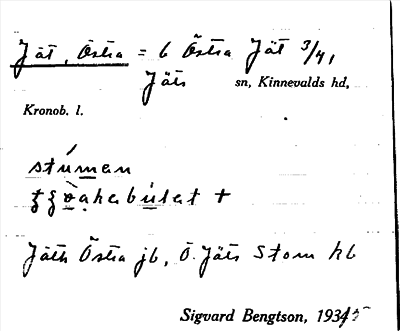 Jät, Östra = 6 Östra Jät 3/4,
Jäts sn, Kinnevalds hd,
Kronob. l.
stúman
+
Jäth Östra jb, Ö. Jäts Stom hb
Sigvard Bengtson, 1934